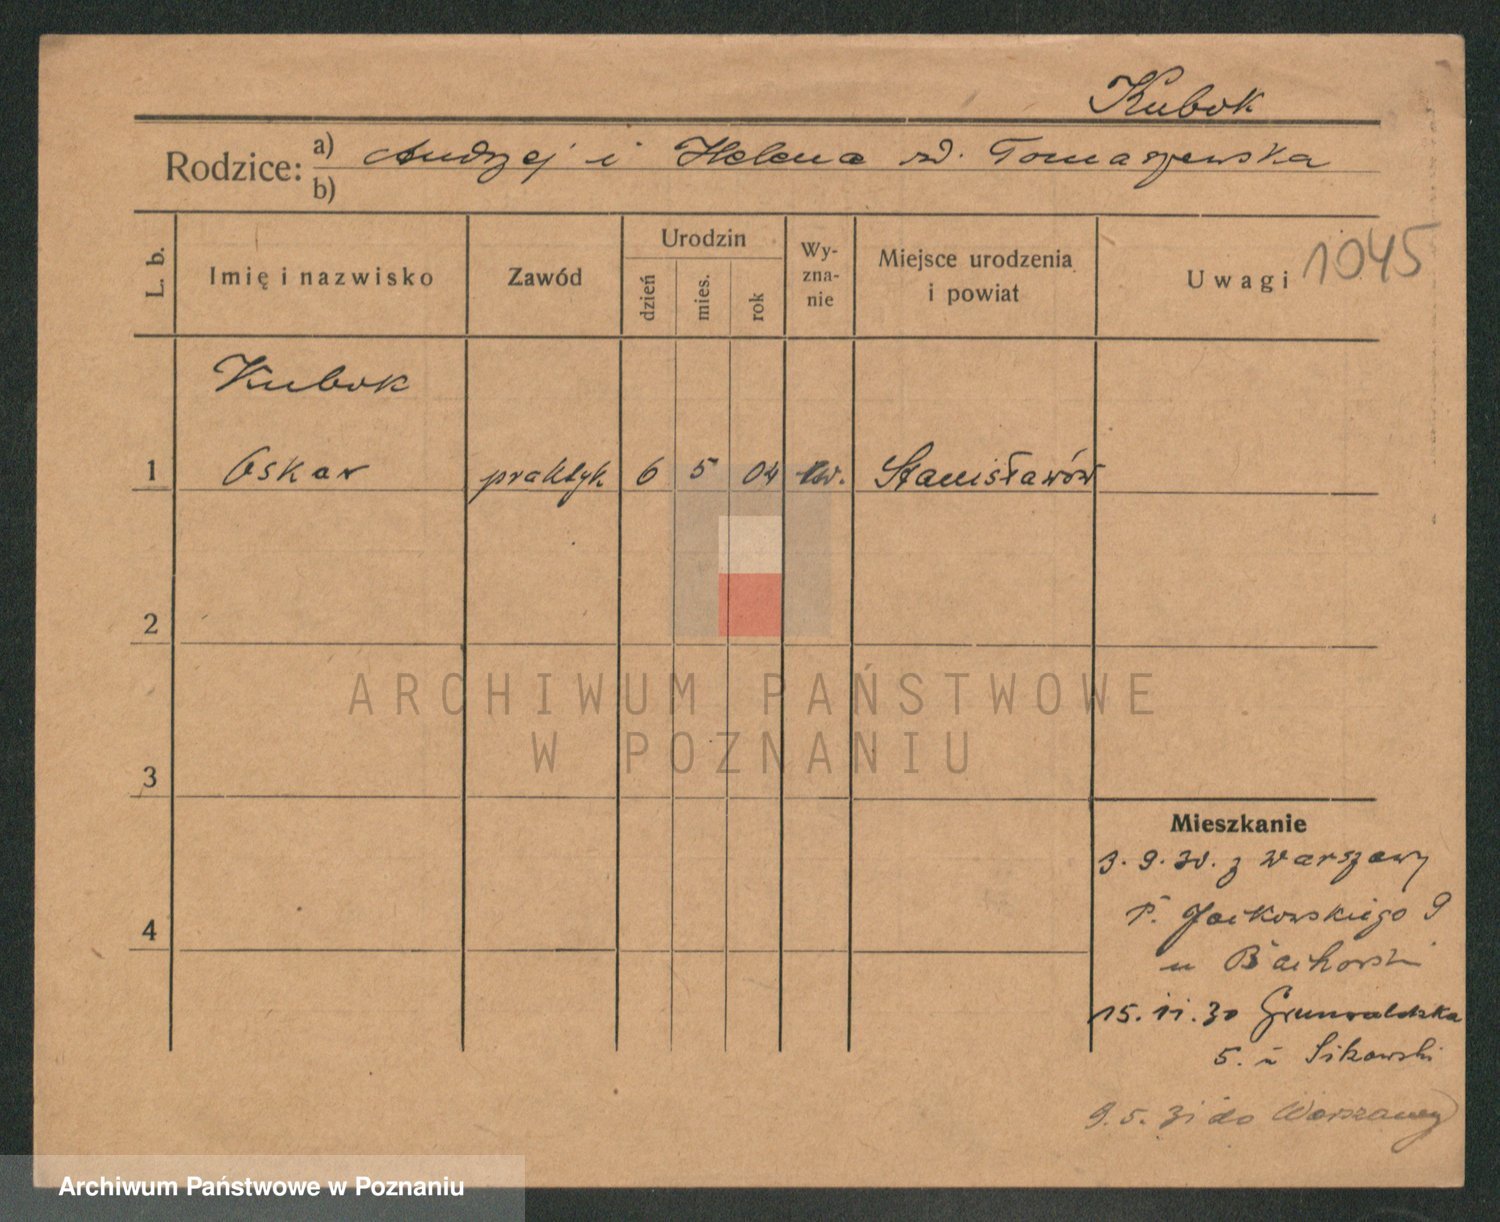 Kubok
Rodzice: a) Andrzej i Helena zd. Tomaszewska
b)
L. b.
Imię i nazwisko
Zawód
Urodzin
dzień
mies.
rok
Wy-
zna-
nie
Miejsce urodzenia
i powiat
Uwagi
1045
Kubok
1 Oskar praktyk 6 5 04 Stanisławów
2
3
4
ARCHIWUM PAŃSTWOWE
W POZNANIU
Mieszkanie
3. 9. 30. z Warszawy
P. Jackowskiego 9
u
15. 11. 30 Grunwaldzka
5. u Sikorski
9. 5. 31 do Warszawy
Archiwum Państwowe w Poznaniu